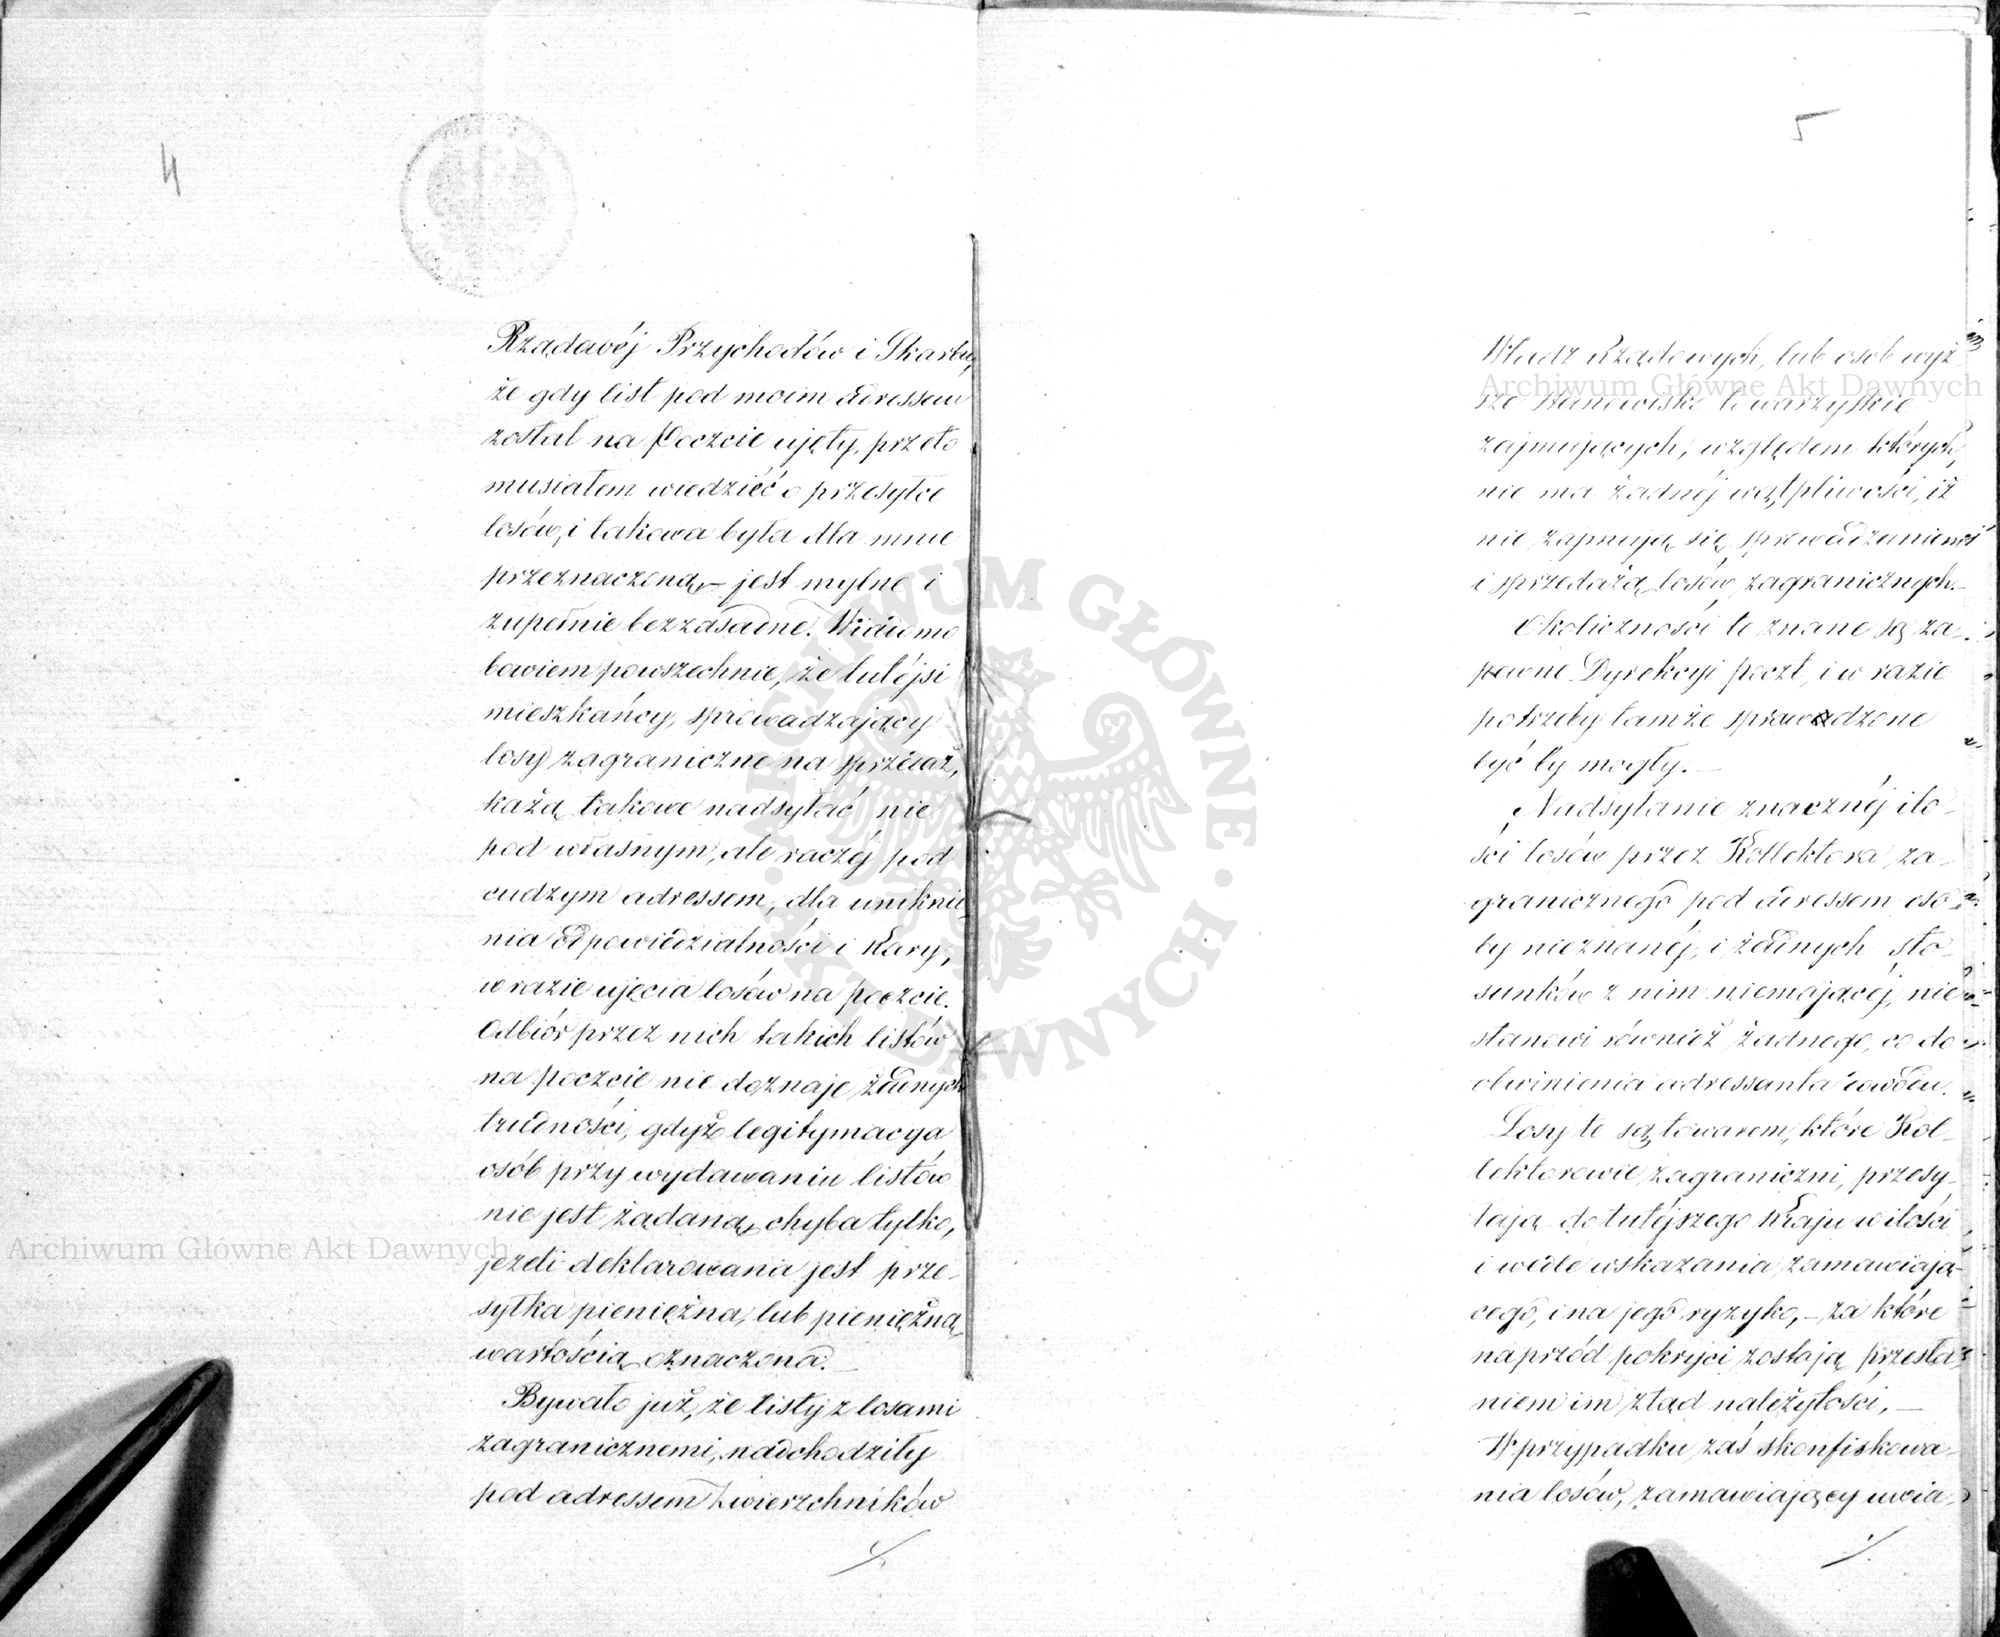 4
Rządowéj Przychodów i Skarbu,
że gdy list pod moim adressem
został na Poczcie ujęty, przeto
musiałem wiedzieć o przesyłce
losów, i takowa była dla mnie
przeznaczoną, – jest mylne i
zupełnie bezzasadne. Wiadomo
bowiem powszechnie, że tutéjsi
mieszkańcy, sprowadzający
losy zagraniczne na sprzedaż,
każą takowe nadsyłać nie
pod własnym, ale raczéj pod
cudzym adressem, dla uniknie
nia odpowiedzialności i kary,
w razie ujęcia losów na poczcie.
Odbiór przez nich takich listów
na poczcie nie doznaje żadnych
trudności, gdyż legitymacya
osób przy wydawaniu listów
nie jest żądaną, chyba tylko,
jeżeli deklarowana jest prze-
syłka pieniężna, lub pieniężną
wartością oznaczona. –
Bywało już, że listy z losami
zagranicznemi, nadchodziły
pod adressem Zwierzchników
./.
5
Władz Rządowych, lub osób wyż
sze stanowisko towarzyskie
zajmujących, względem których,
nie ma żadnéj wątpliwości, iż
nie zajmują się sprowadzaniem
i sprzedażą losów zagranicznych. –
Okoliczności te znane są za-
pewne Dyrekcyi poczt, i w razie
potrzeby tamże sprawdzone
być by mogły. –
Nadsyłanie znacznéj ilo-
ści losów przez Kollektora za-
granicznego pod adressem oso
by nieznanéj, i żadnych sto-
sunków z nim niemającéj, nie
stanowi również żadnego, co do
obwinienia adressanta dowodu.
Losy te są towarem, które Kol-
lektorowie zagraniczni, przesy-
łają do tutéjszego Kraju w ilości
i wedle wskazania zamawiają-
cego, i na jego ryzyko, – za które
naprzód pokryci zostają przesła-
niem im ztąd należytości, –
W przypadku zaś skonfiskowa-
nia losów, zamawiający uwia-
./.
Archiwum Główne Akt Dawnych
Archiwum Główne Akt Dawnych
ARCHIWUM GŁÓWNE · AKT DAWNYCH ·